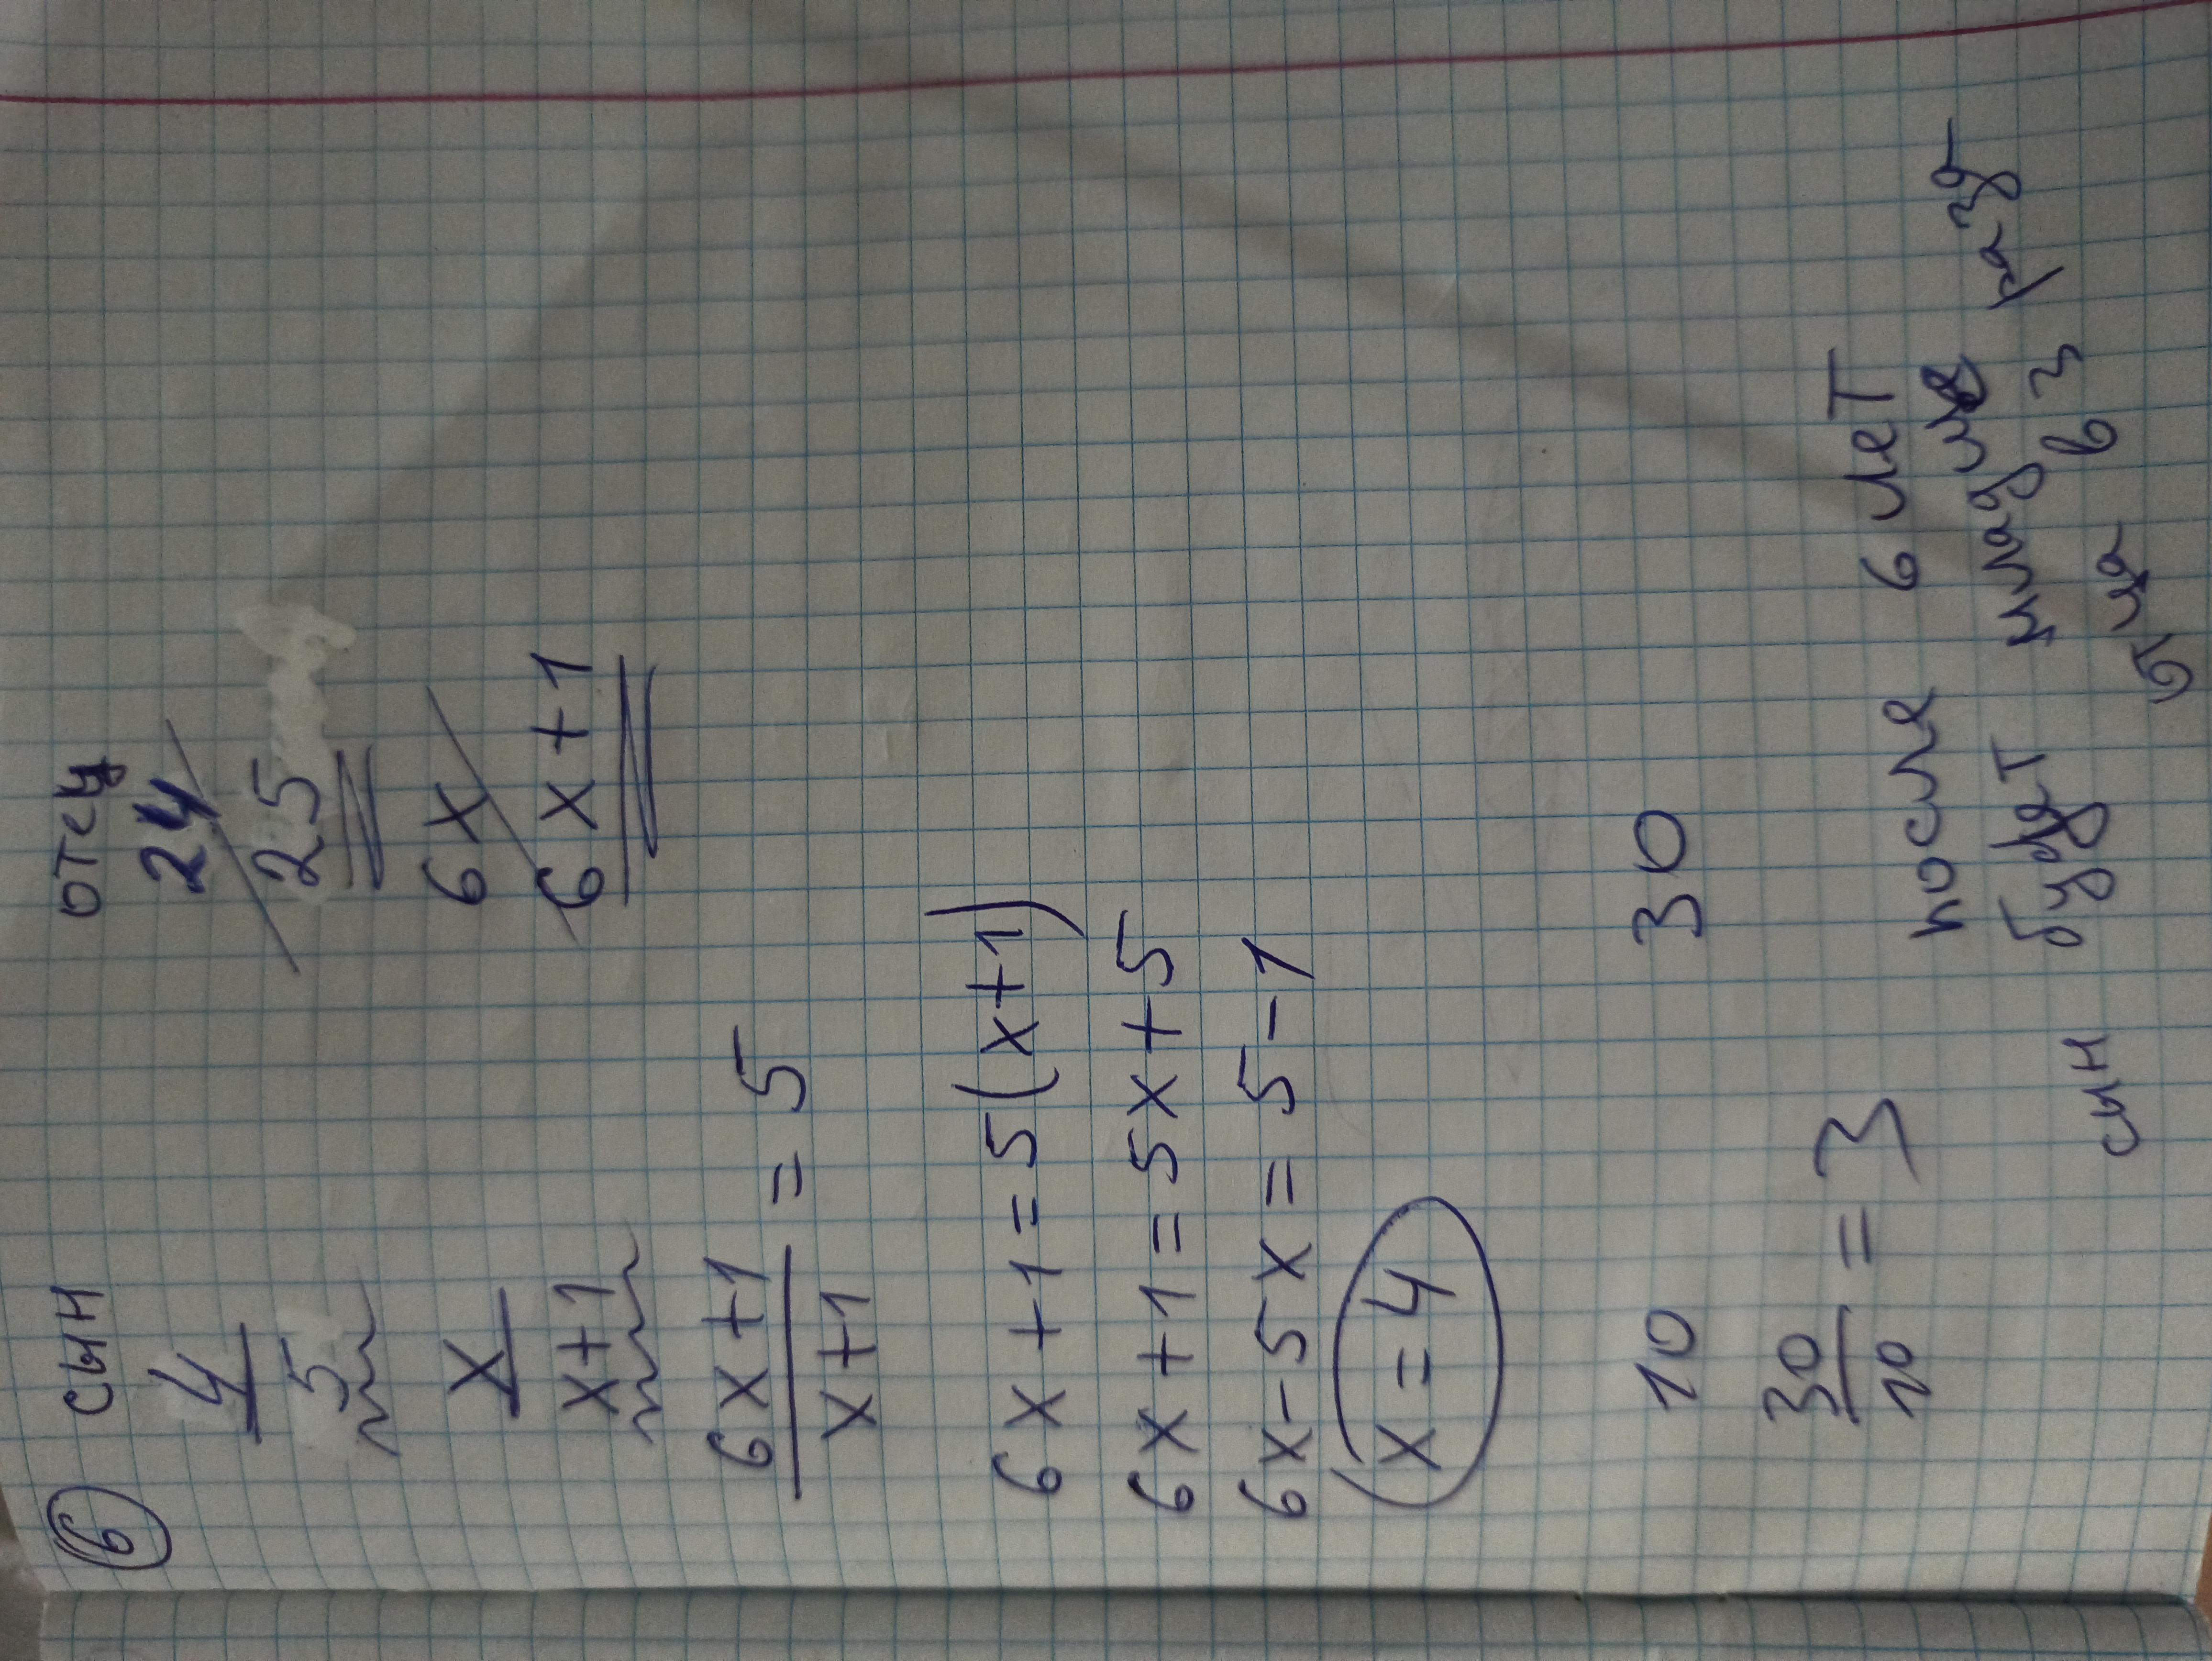 6 сын отец
4 24
5 25
x 6x
x+1 6x+1
6x+1
x+1 = 5
6x+1=5(x+1)
6x+1=5x+5
6x-5x=5-1
x=4
10 30
30
10 = 3
после 6 лет
сын будет младше
отца в 3 раза